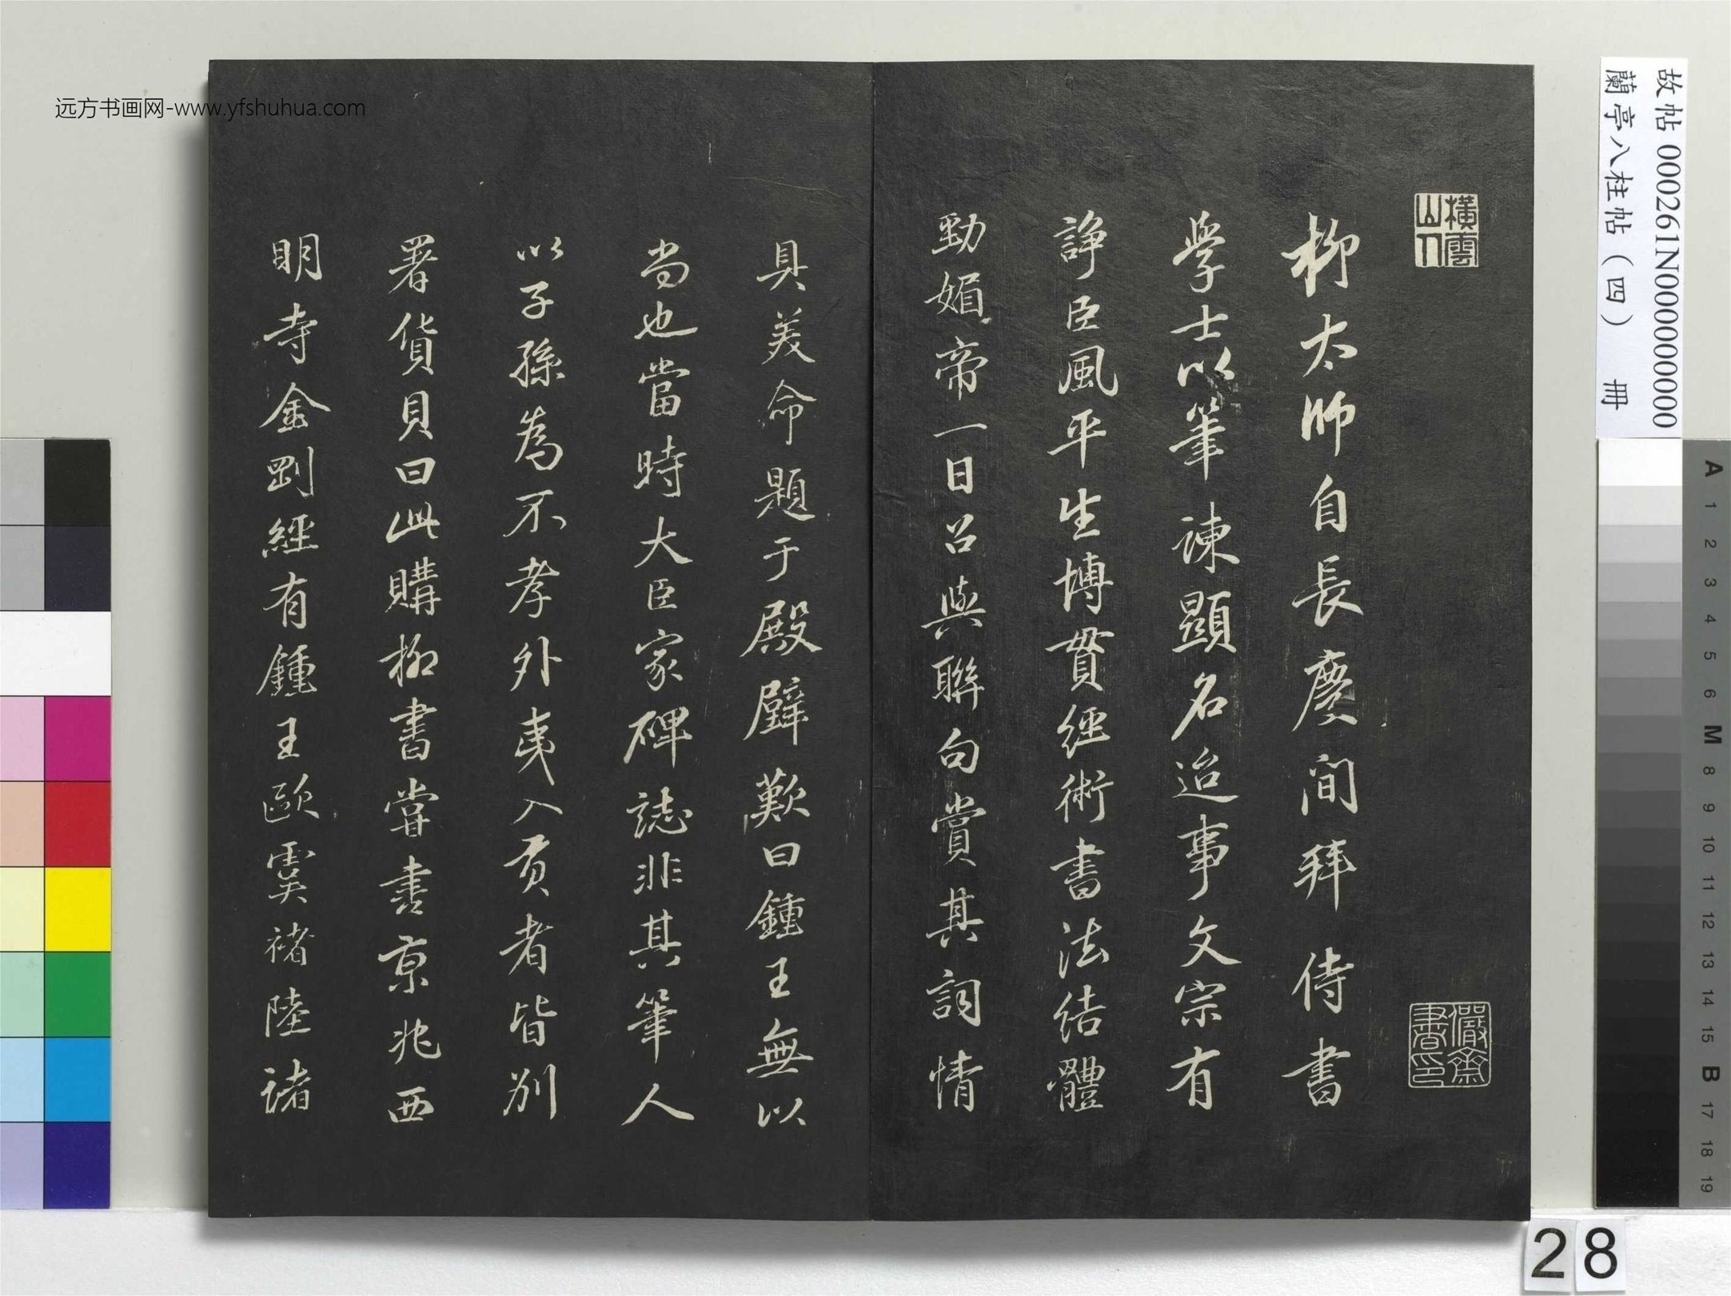 柳太師自長慶間拜侍書
學士以筆諫顯名迨事文宗有
諍臣風平生博貫經術書法結體
勁媚帝一日召與聯句賞其詞情
具美命題于殿壁歎曰鍾王無以
尚也當時大臣家碑誌非其筆人
以子孫為不孝外夷入貢者皆別
署貨貝曰此購柳書嘗書京兆西
明寺金剛經有鍾王歐虞褚陸諸
橫雲山人
儼齋書印
故帖 000261N000000000
蘭亭八柱帖(四) 冊
远方书画网-www.yfshuhua.com
A
1
2
3
4
5
6
M
8
9
10
11
12
13
14
15
B
17
18
19
28